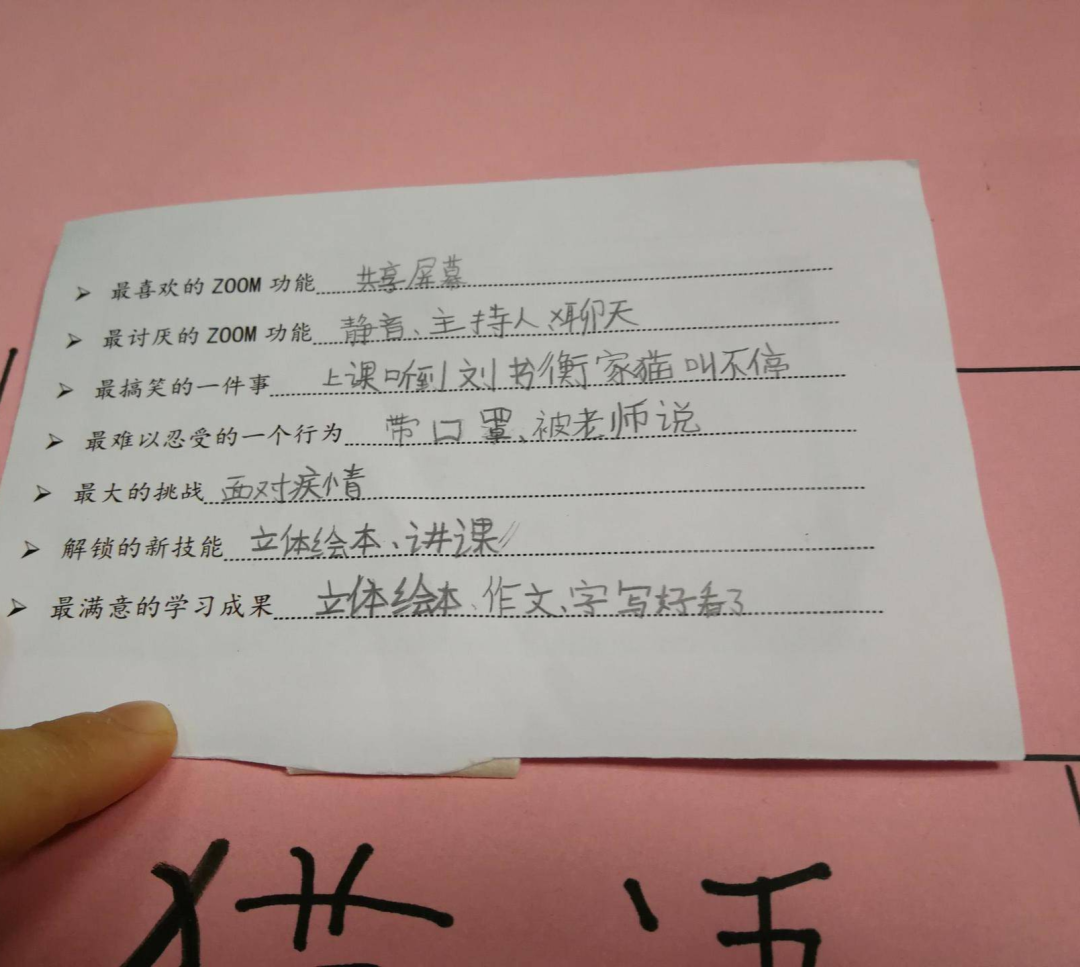 ➢ 最喜欢的 ZOOM 功能 共享屏幕
➢ 最讨厌的 ZOOM 功能 静音、主持人、聊天
➢ 最搞笑的一件事 上课听到刘书衡家猫叫不停
➢ 最难以忍受的一个行为 带口罩、被老师说
➢ 最大的挑战 面对疾情
➢ 解锁的新技能 立体绘本、讲课
➢ 最满意的学习成果 立体绘本、作文、字写好看了